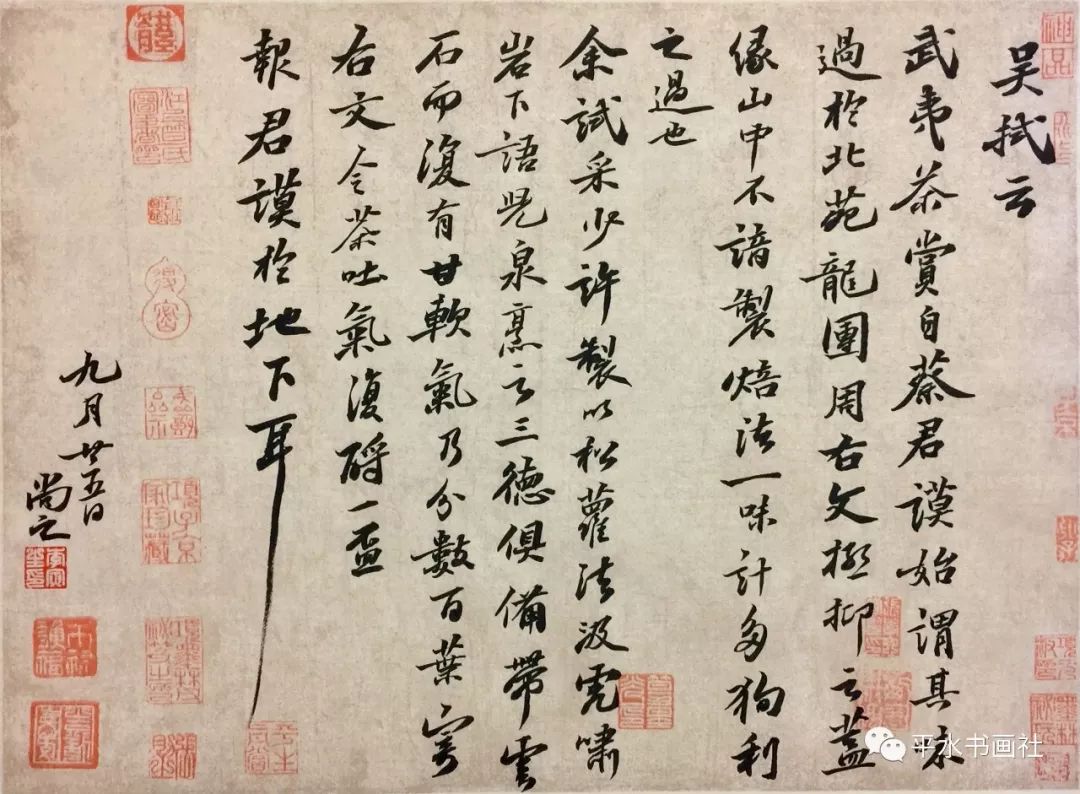 吴拭云
武夷茶賞自蔡君謨始謂其味
過於北苑龍團周右文極抑之蓋
緣山中不諳製焙法一味計多狥利
之過也
余試采少許製以松蘿法汲虎嘯
岩下語兒泉烹之三德俱備帶雲
石而復有甘軟氣乃分數百葉寄
右文令茶吐氣復酹一盃
報君謨於地下耳
九月廿五日
尚之
平水书画社